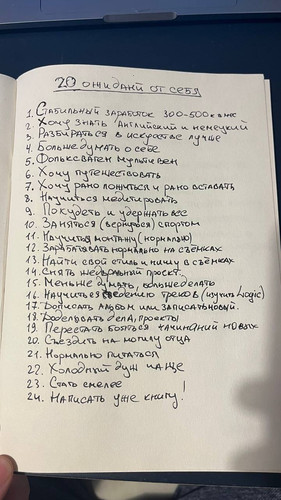 20 ОЖИДАНИЙ ОТ СЕБЯ
1. Стабильный заработок 300-500к в мес
2. Хочу знать английский и немецкий
3. Разбираться в искусстве лучше
4. Больше думать о себе
5. Фольксваген мультивен
6. Хочу путешествовать
7. Хочу рано ложиться и рано вставать
8. Научиться медитировать
9. Похудеть и удержать вес
10. Заняться (вернуться) спортом
11. Научиться монтажу (нормально)
12. Зарабатывать нормально на съёмках
13. Найти свой стиль и нишу в съёмках
14. Снять шедевральный проект.
15. Меньше думать, больше делать
16. Научиться сведению треков (изучить Logic)
17. Дописать альбом или записать новый.
18. Доделывать дела, проекты
19. Перестать бояться начинаний новых
20. Съездить на могилу отца
21. Нормально питаться
22. Холодный душ чаще
23. Стать смелее
24. Написать уже книгу!